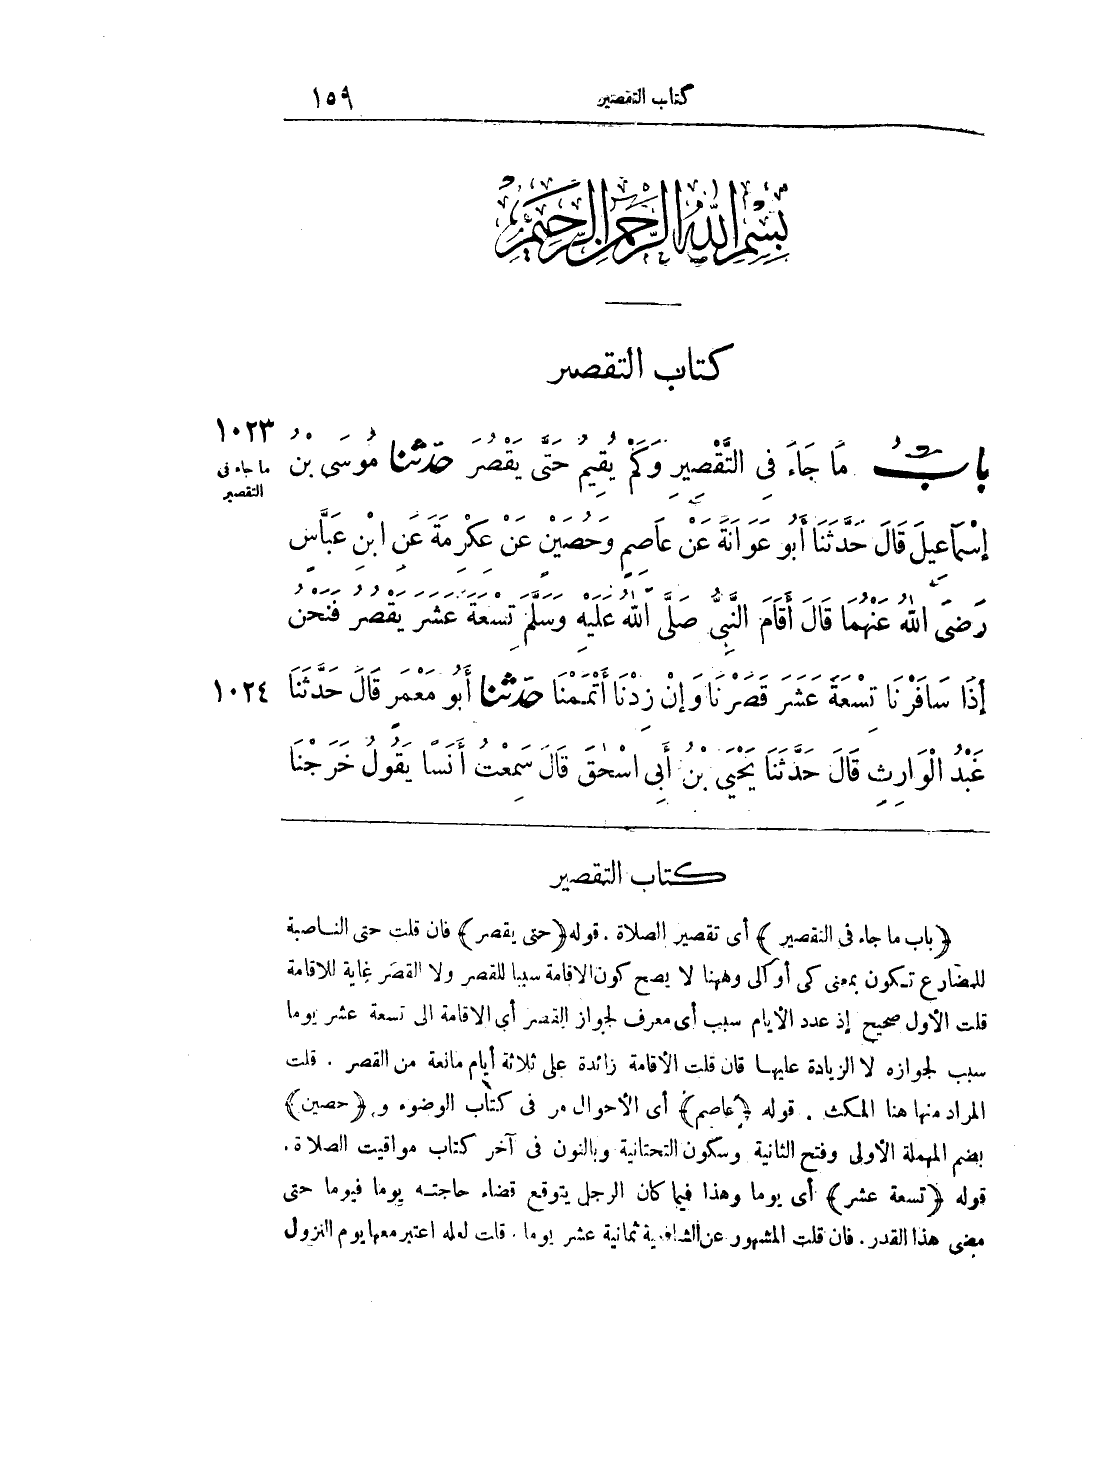 كتاب التقصير ١٥٩
بِسْمِ اللهِ الرَّحْمٰنِ الرَّحِيْمِ
كتاب التقصير
١٠٢٣
ما جاء فى
التقصير
بابُ مَا جَاءَ فِى التَّقْصِيرِ وَكَمْ يُقِيمُ حَتَّى يَقْصُرَ حدثنا مُوسَى بْنُ
إِسْمَاعِيلَ قَالَ حَدَّثَنَا أَبُو عَوَانَةَ عَنْ عَاصِمٍ وَحُصَيْنٍ عَنْ عِكْرِمَةَ عَنِ ابْنِ عَبَّاسٍ
رَضِىَ اللهُ عَنْهُمَا قَالَ أَقَامَ النَّبِىُّ صَلَّى اللهُ عَلَيْهِ وَسَلَّمَ تِسْعَةَ عَشَرَ يَقْصُرُ فَنَحْنُ
إِذَا سَافَرْنَا تِسْعَةَ عَشَرَ قَصَرْنَا وَإِنْ زِدْنَا أَتْمَمْنَا حدثنا أَبُو مَعْمَرٍ قَالَ حَدَّثَنَا
١٠٢٤
عَبْدُ الْوَارِثِ قَالَ حَدَّثَنَا يَحْيَى بْنُ أَبِى اسْحٰقَ قَالَ سَمِعْتُ أَنَسًا يَقُولُ خَرَجْنَا
كتاب التقصير
﴿باب ما جاء فى التقصير﴾ أى تقصير الصلاة . قوله ﴿حتى يقصر﴾ فان قلت حتى الناصبة
للمضارع تكون بمعنى كى أو الى وههنا لا يصح كون الاقامة سببا للقصر ولا القصر غاية للاقامة
قلت الأول صحيح إذ عدد الأيام سبب أى معرف لجواز القصر أى الاقامة الى تسعة عشر يوما
سبب لجوازه لا الزيادة عليها فان قلت الأقامة زائدة على ثلاثة أيام مانعة من القصر . قلت
المراد منها هنا المكث . قوله ﴿عاصم﴾ أى الأحوال مر فى كتاب الوضوء و ﴿حصين﴾
بضم المهملة الأولى وفتح الثانية وسكون التحتانية وبالنون فى آخر كتاب مواقيت الصلاة .
قوله ﴿تسعة عشر﴾ أى يوما وهذا فيما كان الرجل يتوقع قضاء حاجته يوما فيوما حتى
مضى هذا القدر . فان قلت المشهور عن الشافعية ثمانية عشر يوما . قلت لعله اعتبر معها يوم النزول